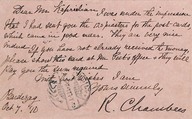 Dear Mr. Hiperelian, I was under the impression
that I had sent you the acquisition for the post-cards
which came in good order. They are very nice
indeed. If you have not already received the money,
please show this card at Mr. Peet's office & they will
pay you the sum required.
With best wishes I am
Yours Sincerely
R. Chambers
Bardezag
Oct 7, '10